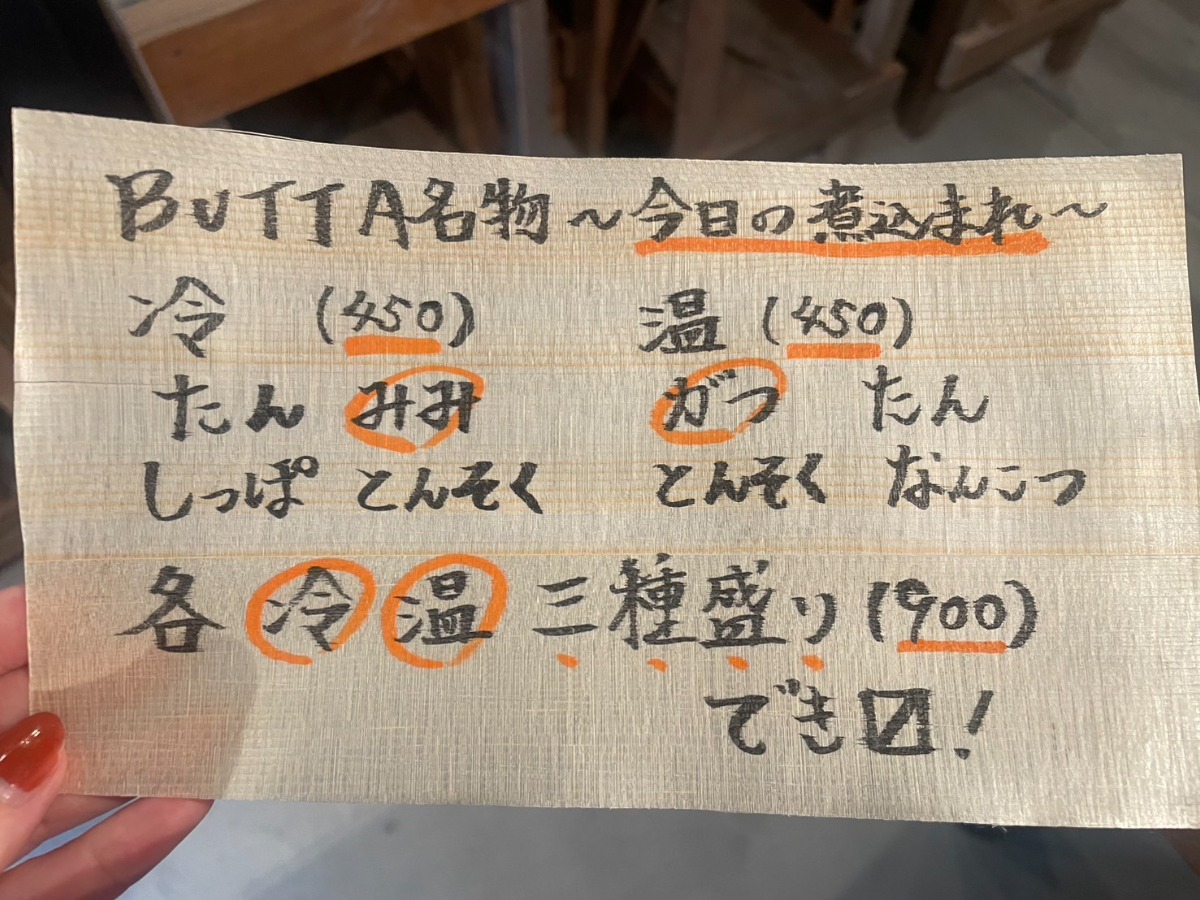 BUTTA名物～今日の煮込まれ～
冷 (450) 温 (450)
たん みみ がつ たん
しっぽ とんそく とんそく なんこつ
各 冷 温 三種盛り (900)
でき〼!